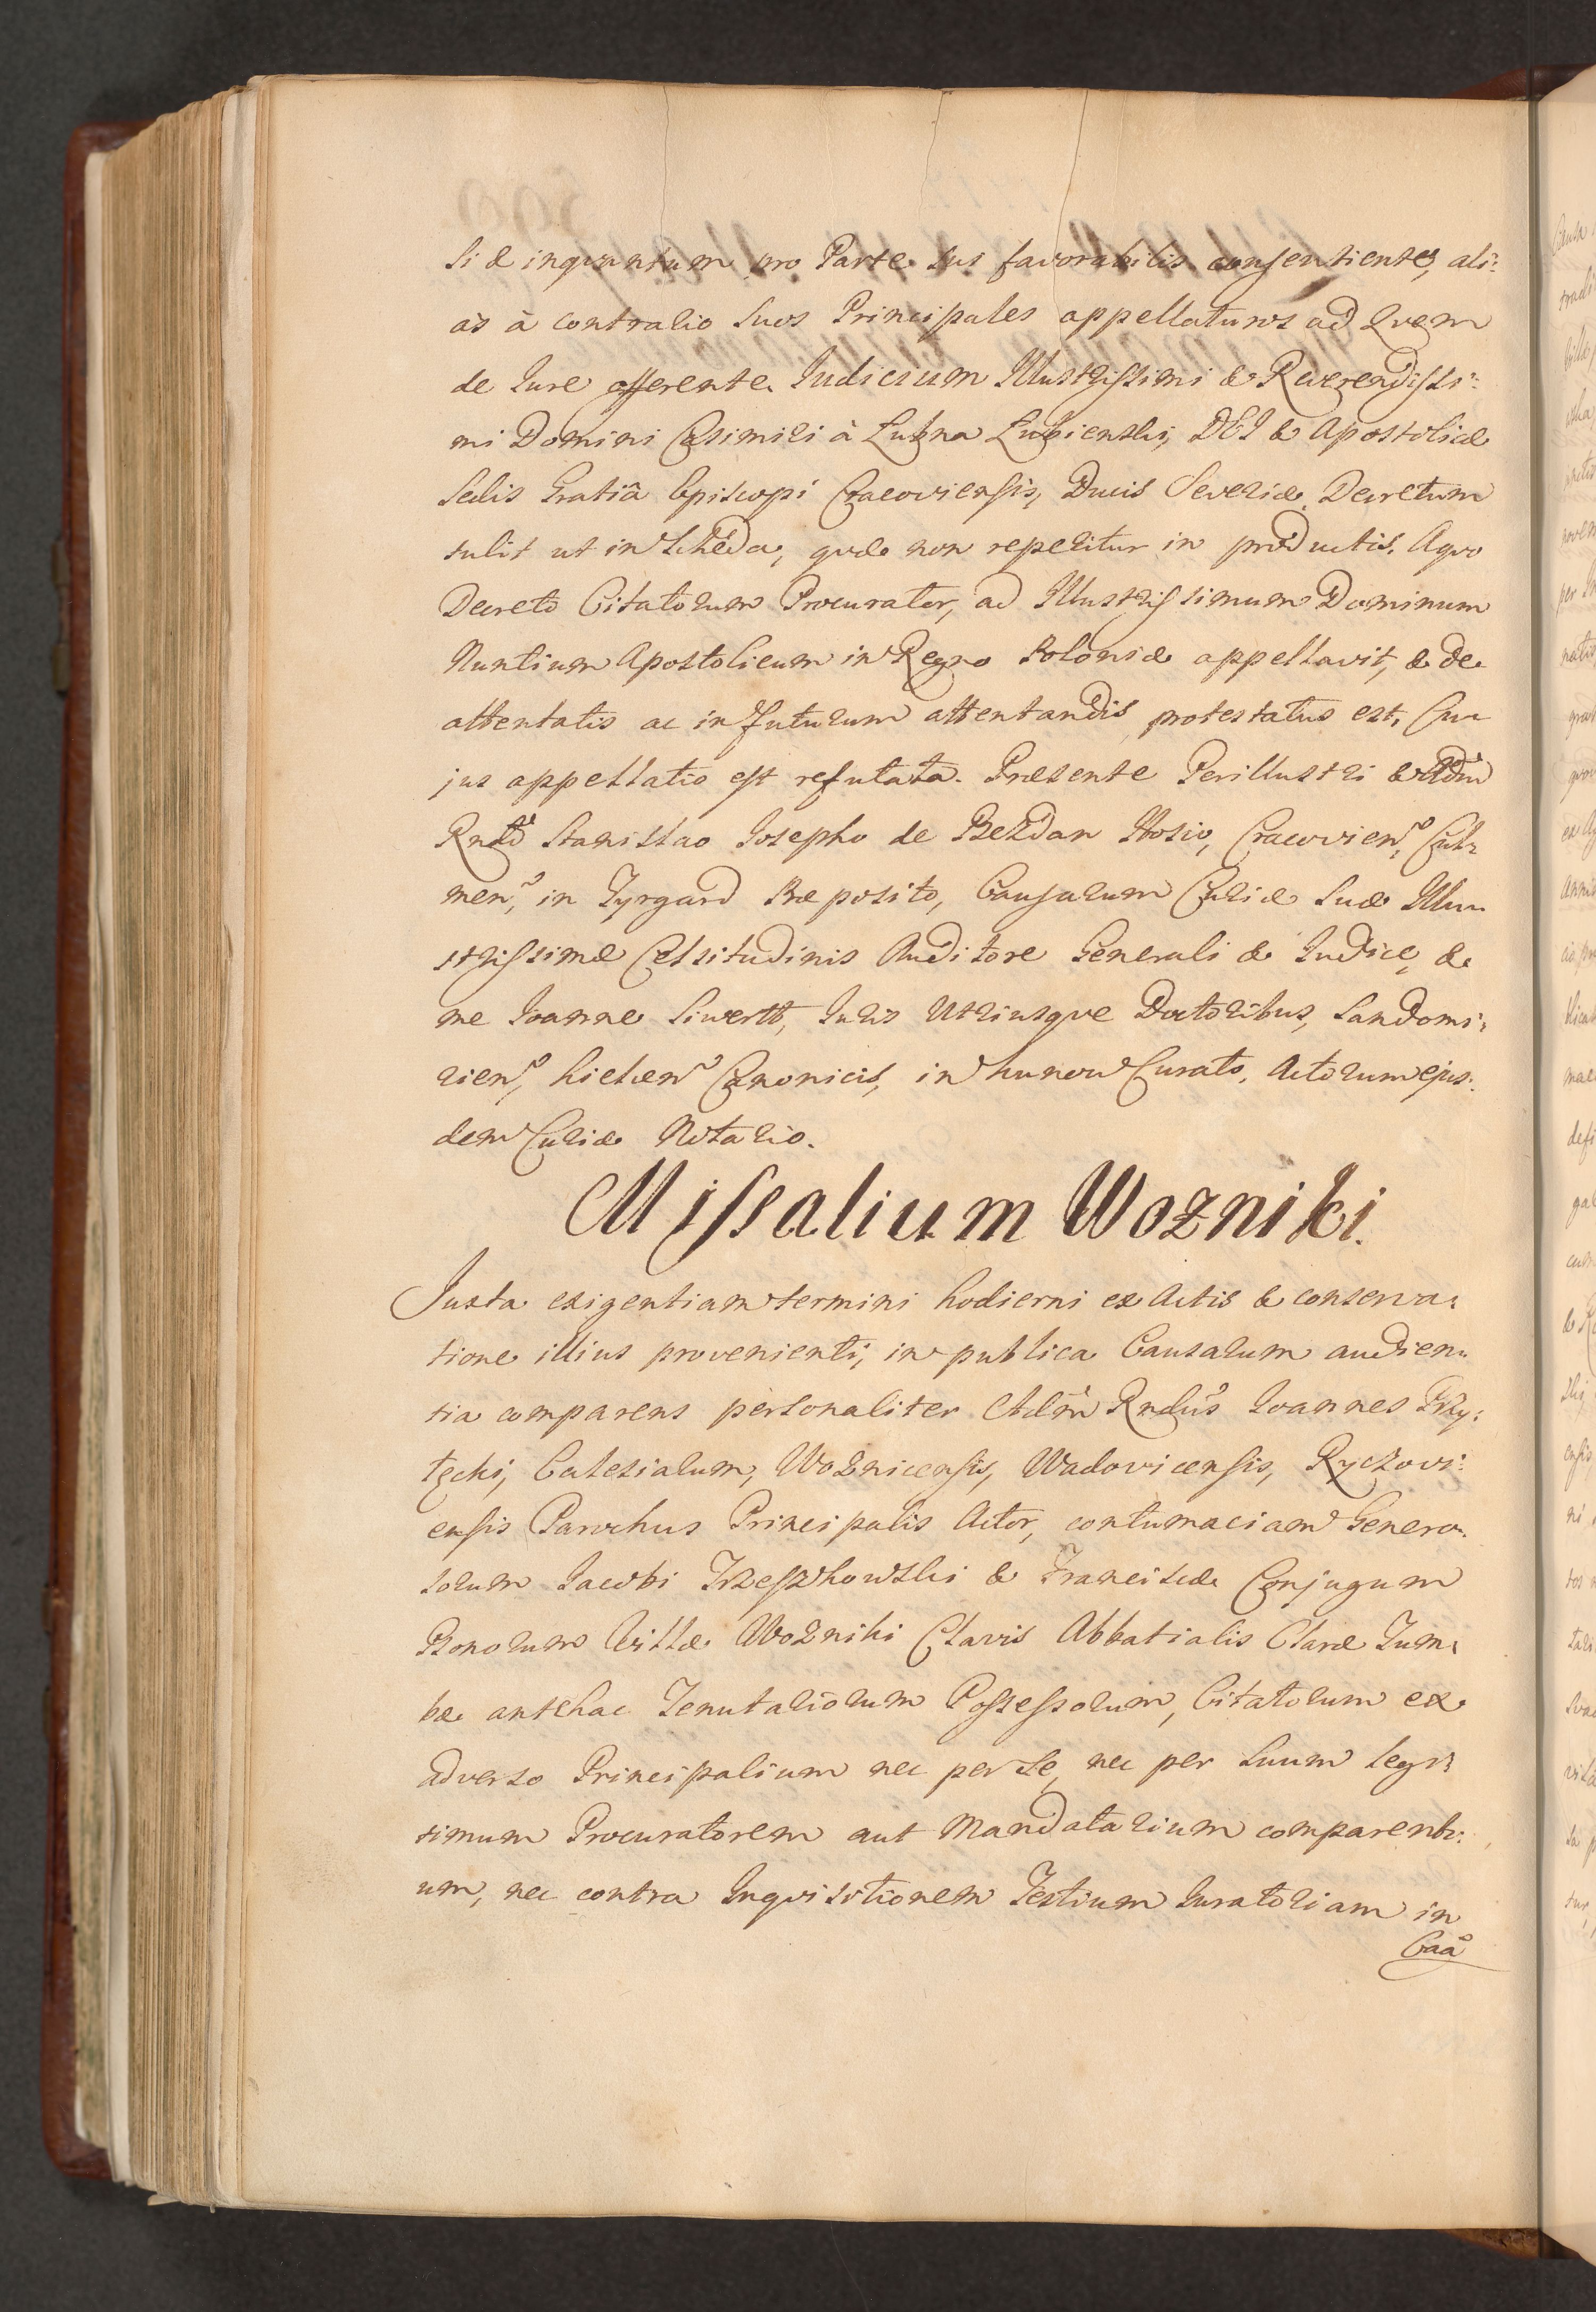 si & inquantum pro Parte sui favorabilis consentiente, ali:
as à contrario suos Principales appellaturos ad Quem
de Iure afferente Iudicium Illustrissimi & Reverendissi:
mi Domini Casimiri à Lubna Lubienski, DEI & Apostolicæ
Sedis Gratiâ Episcopi Cracoviensis, Ducis Severiæ Decretum
tulit ut in Scheda, quæ non reperitur in productis. Aquo
Decreto Citatorum Procurator, ad Illustrissimum Dominum
Nuntium Apostolicum in Regno Poloniæ appellavit, & de
attentatis ac in futurum attentandis protestatus est, Cu
jus appellatio est refutata. Præsente Perillustri & Adm̃
Rndo Stanislao Iosepho de Bezdan Hosio, Cracovien, Cul:
men, in Tyrgard Præposito, Causarum Curiæ Suæ Illu:
strissimæ Celsitudinis Auditore Generali & Iudice, &
me Ioanne Siwertt, Iuris Utriusque Doctoribus, Sandomi:
rien, Kielcen Canonicis, in Kunow Curato, Actorum ejus:
dem Curiæ Notario.
Missalium Wozniki.
Juxta exigentiam termini hodierni ex Actis & conserva:
tione illius provenienti, in publica Causarum audien:
tia comparens personaliter Adm̃ Rndus Ioannes Przy:
łęcki, Ecclesiarum, Woznicensis, Wadovicensis, Ryczovi:
ensis Parochus Principalis Actor, contumaciam Genero:
sorum Iacobi Trzeszkowski & Franciscæ Conjugum
Bonorum Villæ Wozniki Clavis Abbatialis Claræ Tum:
bæ antehac Tenutariorum Possessorum, Citatorum ex
adverso Principalium nec per se, nec per suum legi:
timum Procuratorem aut Mandatarium comparenti:
um, nec contra Inquisitionem Testium Iuratoriam in
Caã